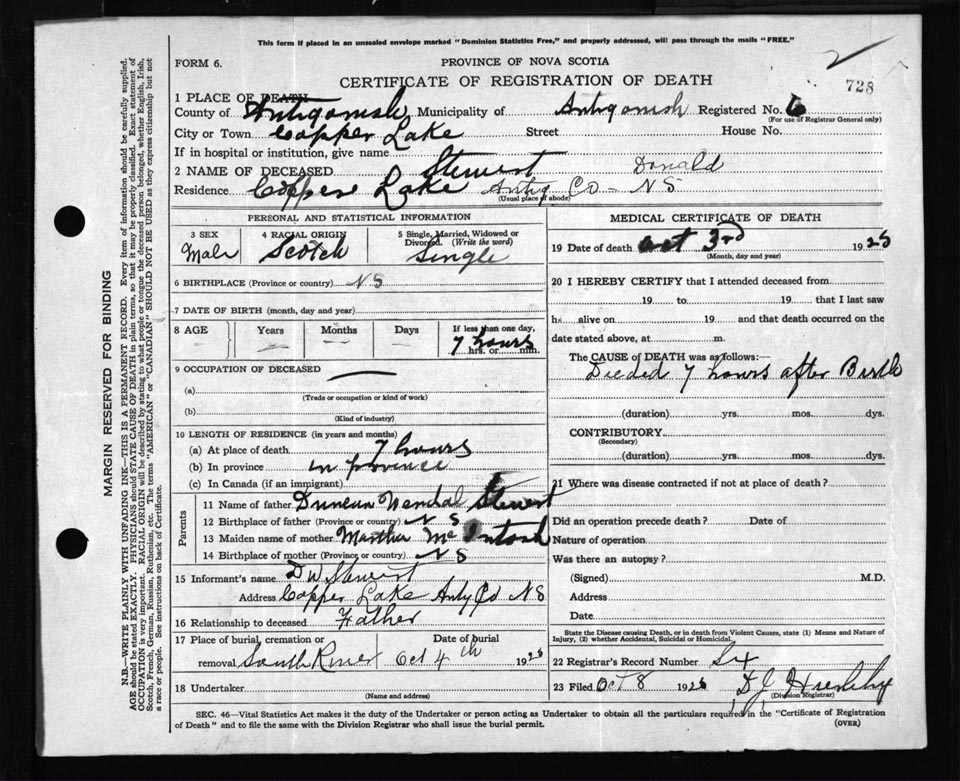 This form if placed in an unsealed envelope marked "Dominion Statistics Free," and properly addressed, will pass through the mails "FREE."
2
FORM 6.
PROVINCE OF NOVA SCOTIA
728
CERTIFICATE OF REGISTRATION OF DEATH
1 PLACE OF DEATH
County of Antigonish Municipality of Antigonish Registered No. 6
(For use of Registrar General only)
City or Town Copper Lake Street House No.
If in hospital or institution, give name
2 NAME OF DECEASED Stewert Donald
Residence Copper Lake Antig Co - NS
(Usual place of abode)
PERSONAL AND STATISTICAL INFORMATION
3 SEX 4 RACIAL ORIGIN 5 Single, Married, Widowed or Divorced. (Write the word)
Male Scotch Single
6 BIRTHPLACE (Province or country) NS
7 DATE OF BIRTH (month, day and year)
8 AGE Years Months Days If less than one day,
7 hours
hrs. or min.
9 OCCUPATION OF DECEASED
(a)
(Trade or occupation or kind of work)
(b)
(Kind of industry)
10 LENGTH OF RESIDENCE (in years and months)
(a) At place of death 7 hours
(b) In province in province
(c) In Canada (if an immigrant)
Parents
11 Name of father Duncan Wendal Stewert
12 Birthplace of father (Province or country) N S
13 Maiden name of mother Martha McIntosh
14 Birthplace of mother (Province or country) NS
15 Informant's name D W Stewert
Address Copper Lake Anty Co NS
16 Relationship to deceased Father
17 Place of burial, cremation or Date of burial
removal South River Oct 4th 1925
18 Undertaker
(Name and address)
MEDICAL CERTIFICATE OF DEATH
19 Date of death Oct 3rd 1925
(Month, day and year)
20 I HEREBY CERTIFY that I attended deceased from
19 to 19 that I last saw
h alive on 19 and that death occurred on the
date stated above, at m.
The CAUSE of DEATH was as follows:—
Dieded 7 hours after Birth
(duration) yrs. mos. dys.
CONTRIBUTORY
(Secondary)
(duration) yrs. mos. dys.
21 Where was disease contracted if not at place of death?
Did an operation precede death? Date of
Nature of operation
Was there an autopay?
(Signed) M.D.
Address
Date
State the Disease causing Death, or in death from Violent Causes, state (1) Means and Nature of
Injury, (2) whether Accidental, Suicidal or Homicidal.
22 Registrar's Record Number Six
23 Filed Oct 8 1925 D J
(Division Registrar)
SEC. 46—Vital Statistics Act makes it the duty of the Undertaker or person acting as Undertaker to obtain all the particulars required in the "Certificate of Registration
of Death" and to file the same with the Division Registrar who shall issue the burial permit.
(OVER)
MARGIN RESERVED FOR BINDING
N.B.—WRITE PLAINLY WITH UNFADING INK—THIS IS A PERMANENT RECORD. Every item of information should be carefully supplied.
AGE should be stated EXACTLY. PHYSICIANS should STATE CAUSE OF DEATH in plain terms, so that it may be properly classified. Exact statement of
OCCUPATION is very important. RACIAL ORIGIN will be described by stating to what people or tongue the deceased person belonged, whether English, Irish,
Scotch, French, German, Russian, Ruthenian, etc. The terms "AMERICAN" or "CANADIAN" SHOULD NOT BE USED as they express citizenship but not
a race or people. See instructions on back of Certificate.